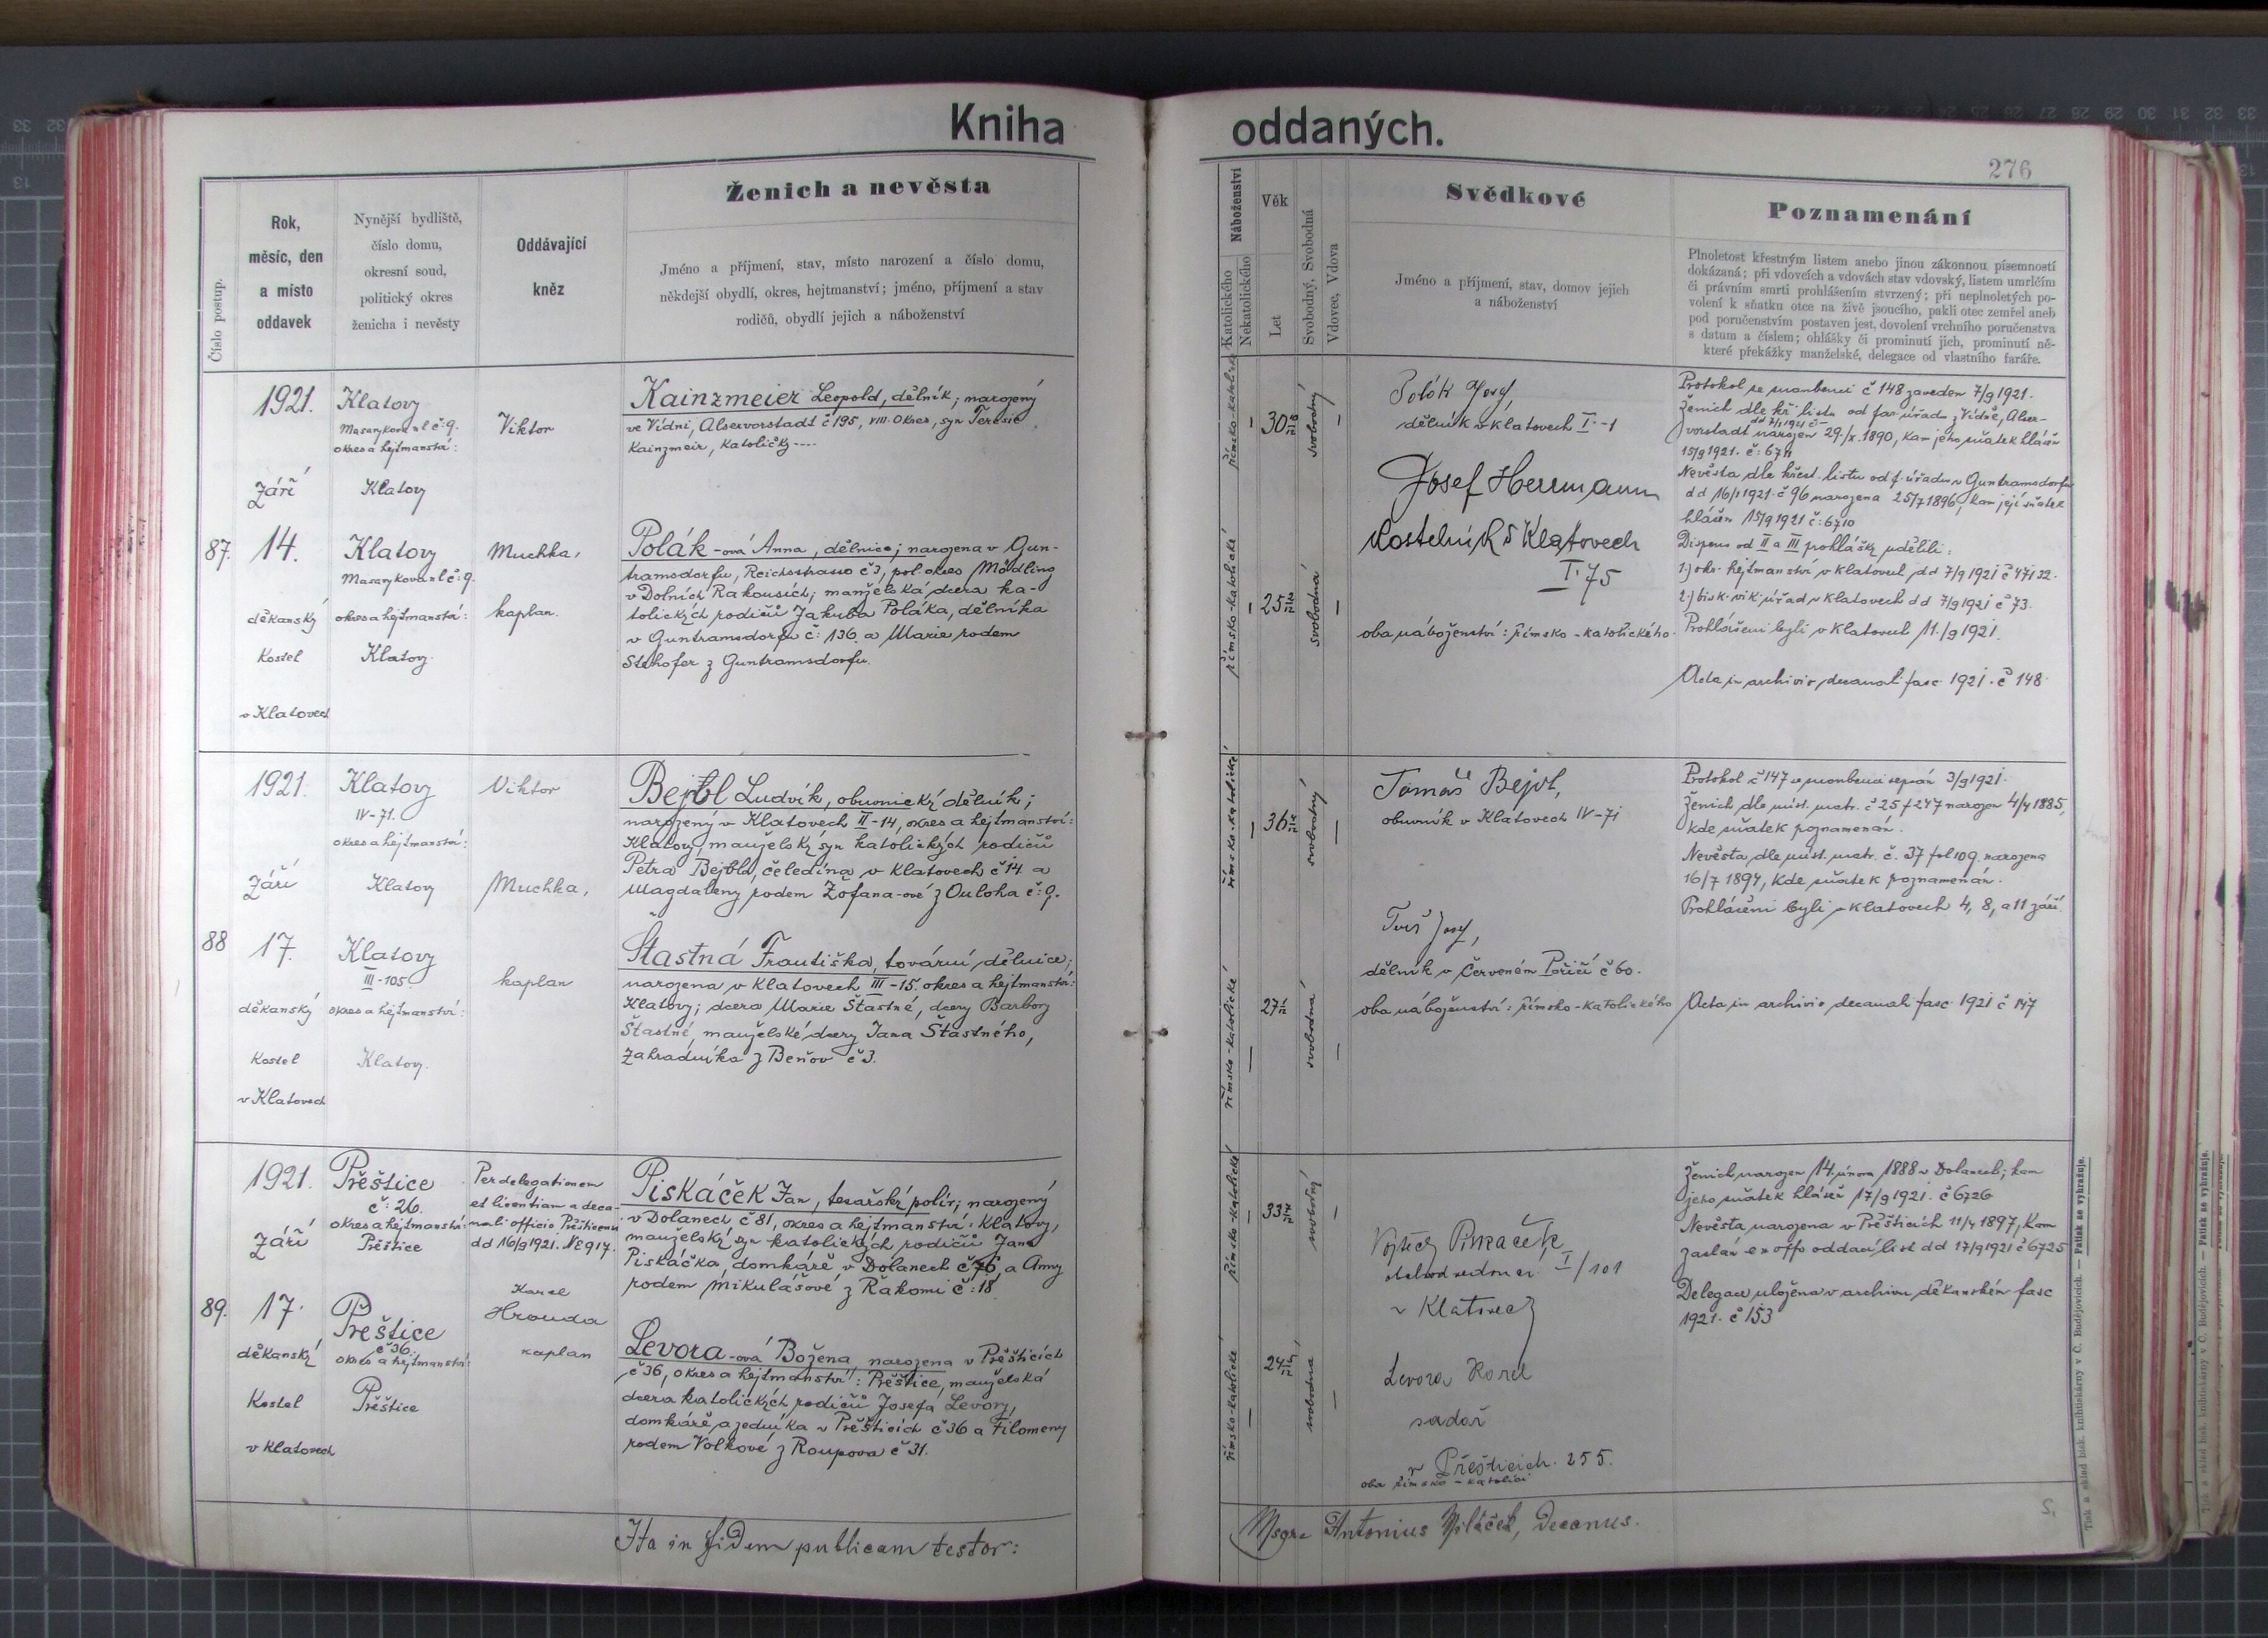 Kniha oddaných.
276
Číslo postup.
Rok,
měsíc, den
a místo
oddavek
Nynější bydliště,
číslo domu,
okresní soud,
politický okres
ženicha i nevěsty
Oddávající
kněz
Ženich a nevěsta
Jméno a příjmení, stav, místo narození a číslo domu,
někdejší obydlí, okres, hejtmanství; jméno, příjmení a stav
rodičů, obydlí jejich a náboženství
Náboženství
Katolického
Nekatolického
Věk
Let
Svobodný, Svobodná
Vdovec, Vdova
Svědkové
Jméno a příjmení, stav, domov jejich
a náboženství
Poznamenání
Plnoletost křestným listem anebo jinou zákonnou písemností
dokázaná; při vdovcích a vdovách stav vdovský, listem umrlčím
či právním smrti prohlášením stvrzený; při neplnoletých po-
volení k sňatku otce na živě jsoucího, pakli otec zemřel aneb
pod poručenstvím postaven jest, dovolení vrchního poručenstva
s datum a číslem; ohlášky či prominutí jich, prominutí ně-
které překážky manželské, delegace od vlastního faráře.
87.
1921.
Září
14.
děkanský
kostel
v Klatovech
Klatovy
Masarykova ul č: 9.
okres a hejtmanství:
Klatovy
Klatovy
Masarykova ul č: 9.
okres a hejtmanství:
Klatovy.
Viktor
Muchka,
kaplan.
Kainzmeier Leopold, dělník; narozený
ve Vídni, Alservorstadt č 195, VIII. okres, syn Terezie
Kainzmeir, katoličky ----
Polák-ová Anna, dělnice; narozena v Gun-
tramsdorfu, Reichsstrasse č 3, pol. okres Mödling
v Dolních Rakousích; manželská dcera ka-
tolických rodičů Jakuba Poláka, dělníka
v Guntramsdorfu č: 136 a Marie rodem
z Guntramsdorfu.
římsko-katolické
30
svobodný
římsko-katolické
25
svobodná
Polák Josef,
dělník v Klatovech I.-1
Josef Herrmann
kostelník v Klatovech
I. 75
oba náboženství: římsko-katolického.
Protokol se snoubenci č 148 zaveden 7/9 1921.
Ženich dle kř. listu od far. úřadu z Vídně, Alser-
vorstadt narozen 29./X. 1890, kam jeho sňatek hlášen
15/9 1921. č: 6711
Nevěsta dle křest. listu od f. úřadu v Guntramsdorfu
dd 16/ 1921. č 96 narozena 25/7 1896, kam její sňatek
hlášen 15/9 1921 č: 6710
Dispens od II a III prohlášky udělili:
1.) okr. hejtmanství v Klatovech dd 7/9 1921 č 47132.
2.) bisk. vik. úřad v Klatovech dd 7/9 1921 č 73.
Prohlášeni byli v Klatovech 11./9 1921.
Acta in archivio decanali fasc. 1921. č 148.
88
1921.
Září
17.
děkanský
kostel
v Klatovech
Klatovy
IV-71.
okres a hejtmanství:
Klatovy
Klatovy
III-105.
okres a hejtmanství:
Klatovy.
Viktor
Muchka,
kaplan
Bejbl Ludvík, obuvnický dělník;
narozený v Klatovech II-14, okres a hejtmanství:
Klatovy, manželský syn katolických rodičů
Petra Bejbla, čeledína v Klatovech č 14 a
Magdaleny rodem Žofana-ové z Ouloha č: 9.
Šťastná Františka, tovární dělnice;
narozena v Klatovech III-15. okres a hejtmanství:
Klatovy; dcera Marie Šťastné, dcery Barbory
Šťastné, manželské dcery Jana Šťastného,
zahradníka z Beňov č 3.
římsko-katolické
36
svobodný
římsko-katolické
27
svobodná
Tomáš Bejbl,
obuvník v Klatovech IV-71
Josef,
dělník v Červeném Poříčí č 60.
oba náboženství: římsko-katolického
Protokol č 147 se snoubenci sepsán 3/9 1921.
Ženich dle míst. matr. č 25 f 247 narozen 4/4 1885,
kde sňatek poznamenán.
Nevěsta dle míst. matr. č. 37 fol 109. narozena
16/7 1894, kde sňatek poznamenán.
Prohlášeni byli v Klatovech 4, 8, a 11 září.
Acta in archivio decanali fasc. 1921 č 147
89.
1921.
Září
17.
děkanský
kostel
v Klatovech
Přeštice
č: 26.
okres a hejtmanství:
Přeštice
Přeštice
č 36.
okres a hejtmanství:
Přeštice
Per delegationem
et licentiam a deca-
nali officio Přešticensi
dd 16/9 1921. NE 917.
Karel
Hrouda
kaplan
Piskáček Jan, tesařský polír; narozený
v Dolanech č 81, okres a hejtmanství: Klatovy,
manželský syn katolických rodičů Jana
Piskáčka, domkáře v Dolanech č 76, a Anny
rodem Mikulášové z Řakomi č: 18
Levora-ová Božena, narozena v Přešticích
č 36, okres a hejtmanství: Přeštice, manželská
dcera katolických rodičů Josefa Levory,
domkáře a zedníka v Přešticích č 36 a Filomeny
rodem Volkové z Roupova č 31.
římsko-katolické
33
svobodný
římsko-katolické
24
svobodna
Vojtěch
I/101
v Klatovech
Levora Karel
sadař
v Přešticích. 255.
oba římsko-katolíci
Ženich narozen 14. února 1888 v Dolanech; kam
jeho sňatek hlášen 17/9 1921. č 6726
Nevěsta narozena v Přešticích 11/4 1897, kam
zaslán ex offo oddací list dd 17/9 1921 č 6725
Delegace uložena v archivu děkanském fasc
1921. č 153
Ita in fidem publicam testor:
Msgre Antonius , Decanus.
Tisk a sklad bisk. knihtiskárny v Č. Budějovicích. — Patisk se vyhražuje.